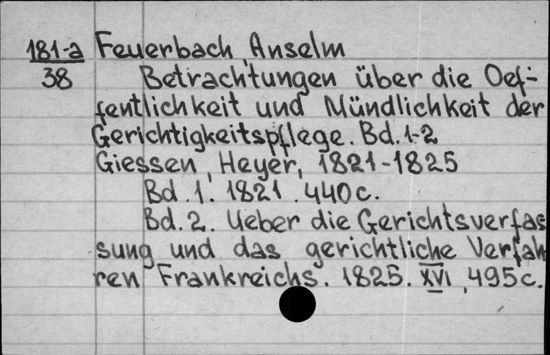 181-a Feuerbach, Anselm
38 Betrachtungen über die Oef-
fentlichkeit und Mündlichkeit der
Gerichtigkeitspflege. Bd. 1-2
Giessen, Heyer, 1821-1825
Bd. 1. 1821. 440c.
Bd. 2. Ueber die Gerichtsverfas
sung und das gerichtliche Verfah
ren Frankreichs. 1825. XVI, 495c.